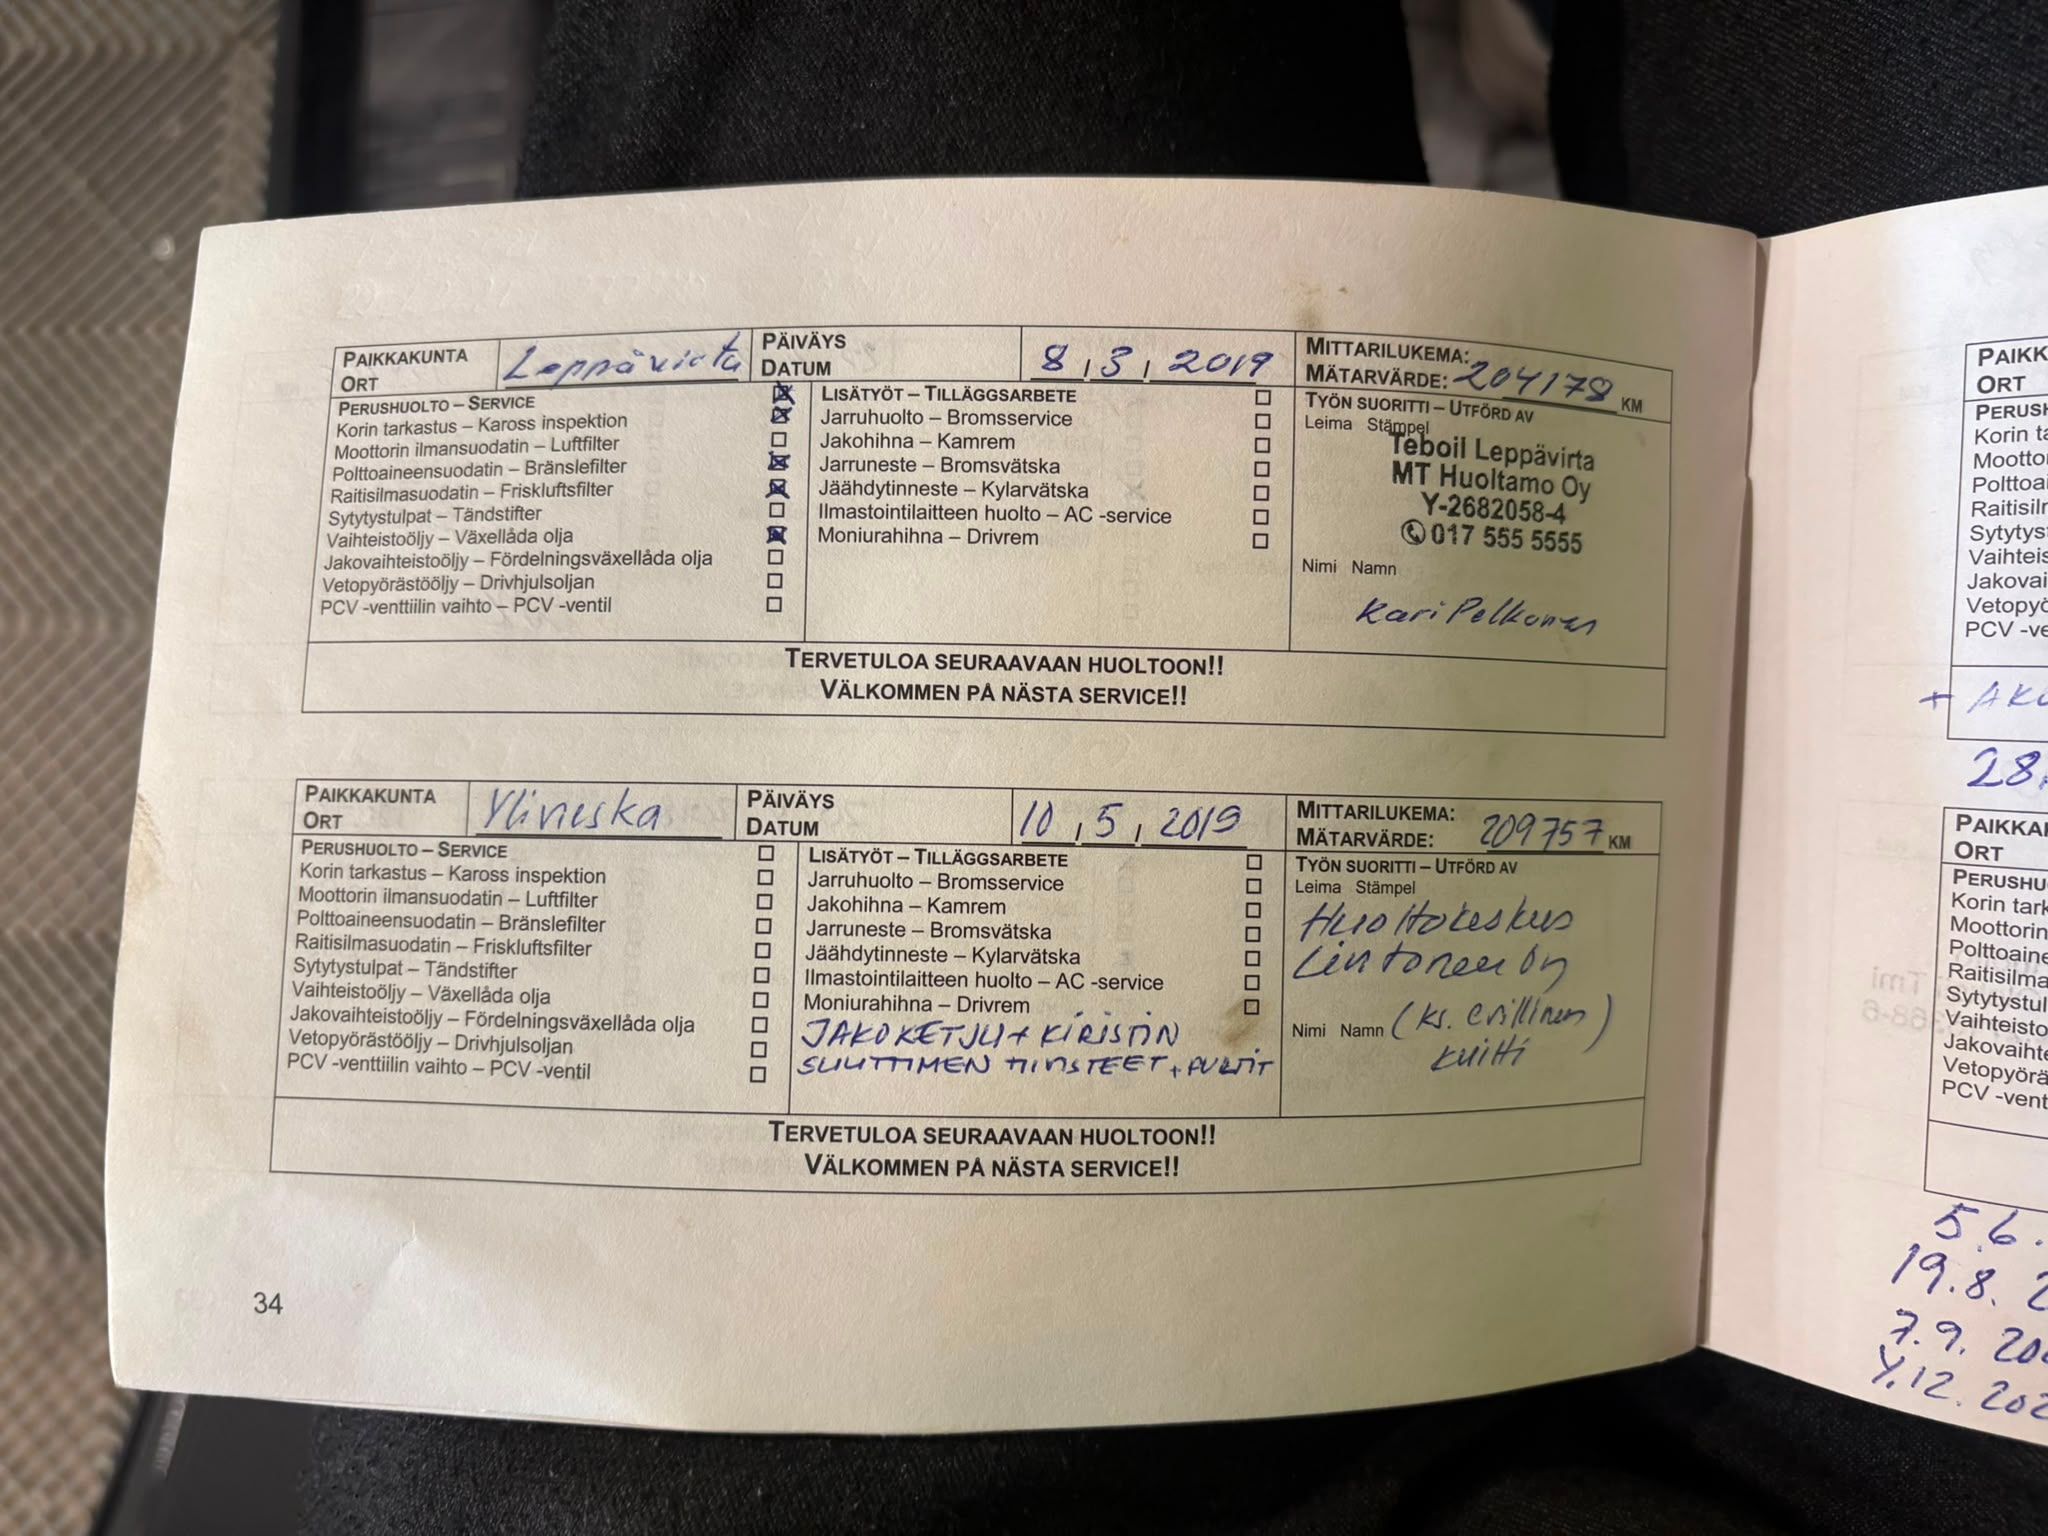 PAIKKAKUNTA
ORT
Leppävirta
PÄIVÄYS
DATUM
8, 3, 2019
MITTARILUKEMA:
MÄTARVÄRDE: 204178 KM
PERUSHUOLTO – SERVICE
Korin tarkastus – Kaross inspektion
Moottorin ilmansuodatin – Luftfilter
Polttoaineensuodatin – Bränslefilter
Raitisilmasuodatin – Friskluftsfilter
Sytytystulpat – Tändstifter
Vaihteistoöljy – Växellåda olja
Jakovaihteistoöljy – Fördelningsväxellåda olja
Vetopyörästööljy – Drivhjulsoljan
PCV -venttiilin vaihto – PCV -ventil
LISÄTYÖT – TILLÄGGSARBETE
Jarruhuolto – Bromsservice
Jakohihna – Kamrem
Jarruneste – Bromsvätska
Jäähdytinneste – Kylarvätska
Ilmastointilaitteen huolto – AC -service
Moniurahihna – Drivrem
TYÖN SUORITTI – UTFÖRD AV
Leima Stämpel
Teboil Leppävirta
MT Huoltamo Oy
Y-2682058-4
017 555 5555
Nimi Namn
Kari Pelkonen
TERVETULOA SEURAAVAAN HUOLTOON!!
VÄLKOMMEN PÅ NÄSTA SERVICE!!
PAIKKAKUNTA
ORT
Ylivieska
PÄIVÄYS
DATUM
10, 5, 2019
MITTARILUKEMA:
MÄTARVÄRDE: 209757 KM
PERUSHUOLTO – SERVICE
Korin tarkastus – Kaross inspektion
Moottorin ilmansuodatin – Luftfilter
Polttoaineensuodatin – Bränslefilter
Raitisilmasuodatin – Friskluftsfilter
Sytytystulpat – Tändstifter
Vaihteistoöljy – Växellåda olja
Jakovaihteistoöljy – Fördelningsväxellåda olja
Vetopyörästööljy – Drivhjulsoljan
PCV -venttiilin vaihto – PCV -ventil
LISÄTYÖT – TILLÄGGSARBETE
Jarruhuolto – Bromsservice
Jakohihna – Kamrem
Jarruneste – Bromsvätska
Jäähdytinneste – Kylarvätska
Ilmastointilaitteen huolto – AC -service
Moniurahihna – Drivrem
JAKOKETJU + KIRISTIN
SUUTTIMEN TIIVISTEET + PULTIT
TYÖN SUORITTI – UTFÖRD AV
Leima Stämpel
Huoltokeskus
Lintonen Oy
Nimi Namn (ks. erillinen)
kuitti
TERVETULOA SEURAAVAAN HUOLTOON!!
VÄLKOMMEN PÅ NÄSTA SERVICE!!
34
ORT
28.
ORT
5.6.
19.8.
7.9.